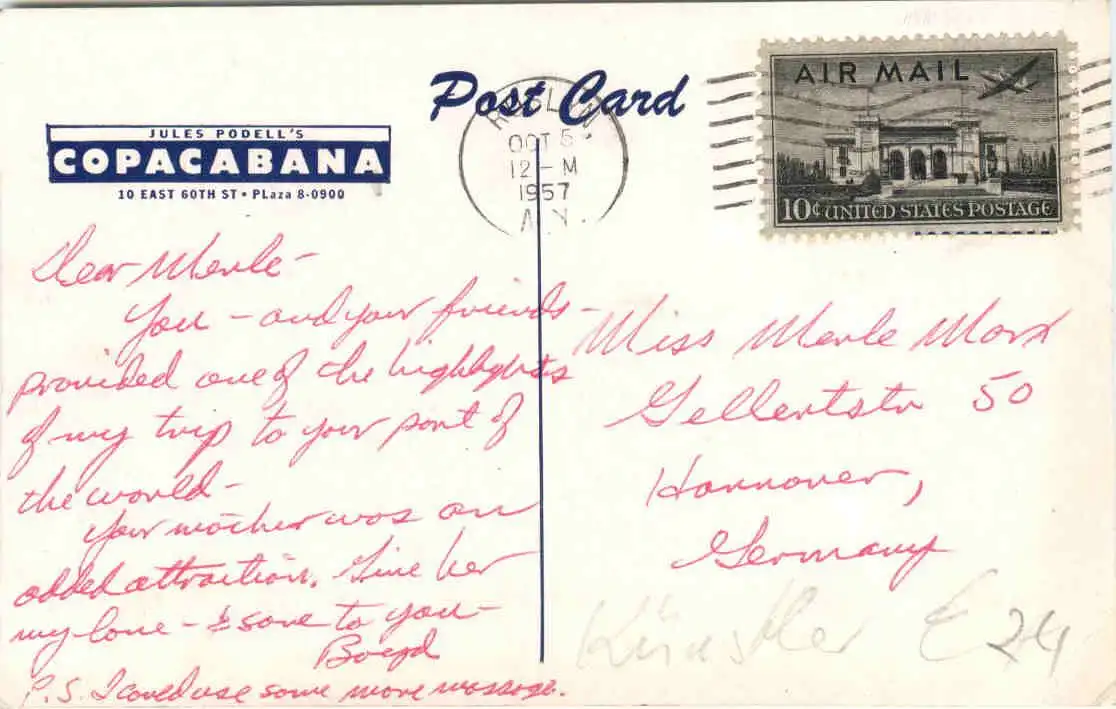 Post Card
JULES PODELL'S
COPACABANA
10 EAST 60TH ST • PLaza 8-0900
OCT 5
12 – M
1957
N.Y.
AIR MAIL
10¢ UNITED STATES POSTAGE
Dear Merle –
You – and your friends –
provided one of the highlights
of my trip to your part of
the world –
Your mother was an
added attraction. Give her
my love – & some to you –
Boyd
P.S. I could use some more massage.
Miss Merle Marx
Gellertstr 50
Hannover,
Germany
Künstler E 24